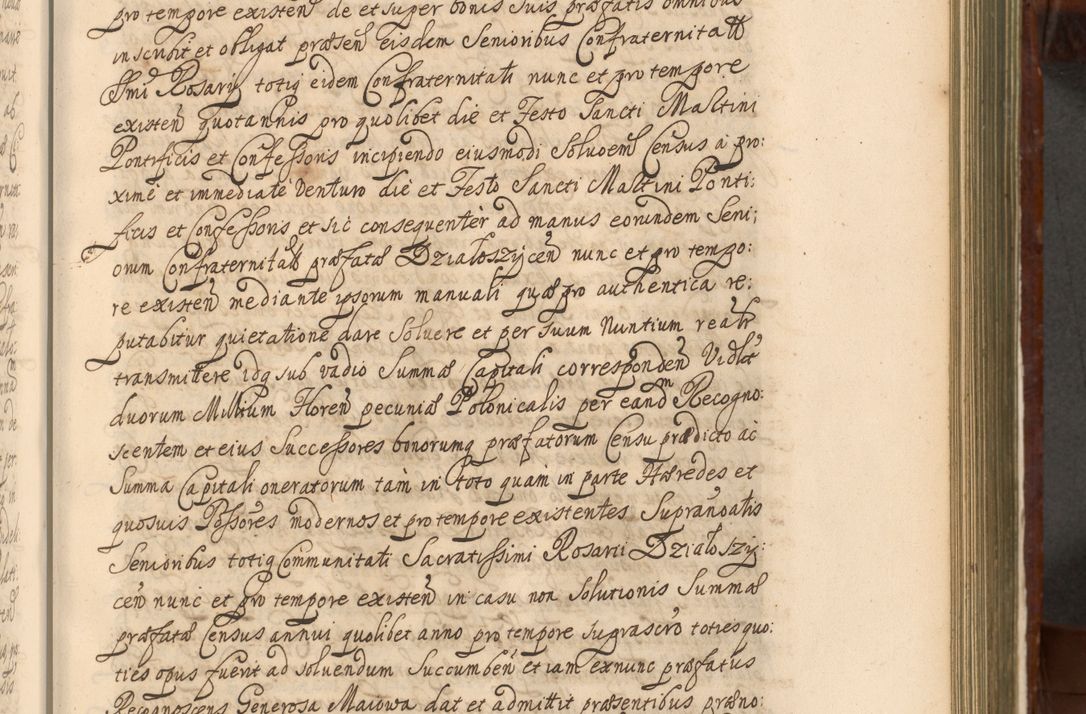 pro tempore existen̄ de et super bonis suis præfatis omnibus
inscribit et obligat præsen̄ eisdem Senioribus Confraternitat
Smi Rosarij totiq eidem Confraternitati nunc et pro tempore
existen̄ quotannis pro quolibet die et Festo Sancti Martini
Pontificis et Confessoris incipiendo eiusmodi Solvoem̄ Census à pro:
ximè et immediatè venturo die et Festo Sancti Martini Ponti:
ficis et Confessoris et sic consequentèr ad manus eorundem Seni;
orum Confraternitatis præfatæ Działoszÿcen̄ nunc et pro tempo:
re existen̄ mediante ipsorum manuali quæ pro authentica re:
putabitur quietatione dare Solvere et per suum Nuntium realr̄
transmittere idq sub vadio Summæ Capitali corresponden̄ Vidlt
duorum Millium Floren̄ pecuniæ Polonicalis per eandm Recogno:
scentem et eius Successores bonorumq præfatorum Censu prædicto ac
Summa Capitali oneratorum tàm in toto quàm in parte Hæredes et
quosuis Possores modernos et pro tempore existentes Supranoatis
Senioribus totiq Communitati Sacratissimi Rosarii Działoszÿ:
cen̄ nunc et pro tempore existen̄ in casu non Solutionis Summæ
præfatæ Census annui quolibet anno pro tempore suprascro toties quo:
ties opus fuerit ad solvendum Succumben̄ et iam exnunc præfatus
Recognoscens Generosa Maiowa dat et admittit præsentibus præno: